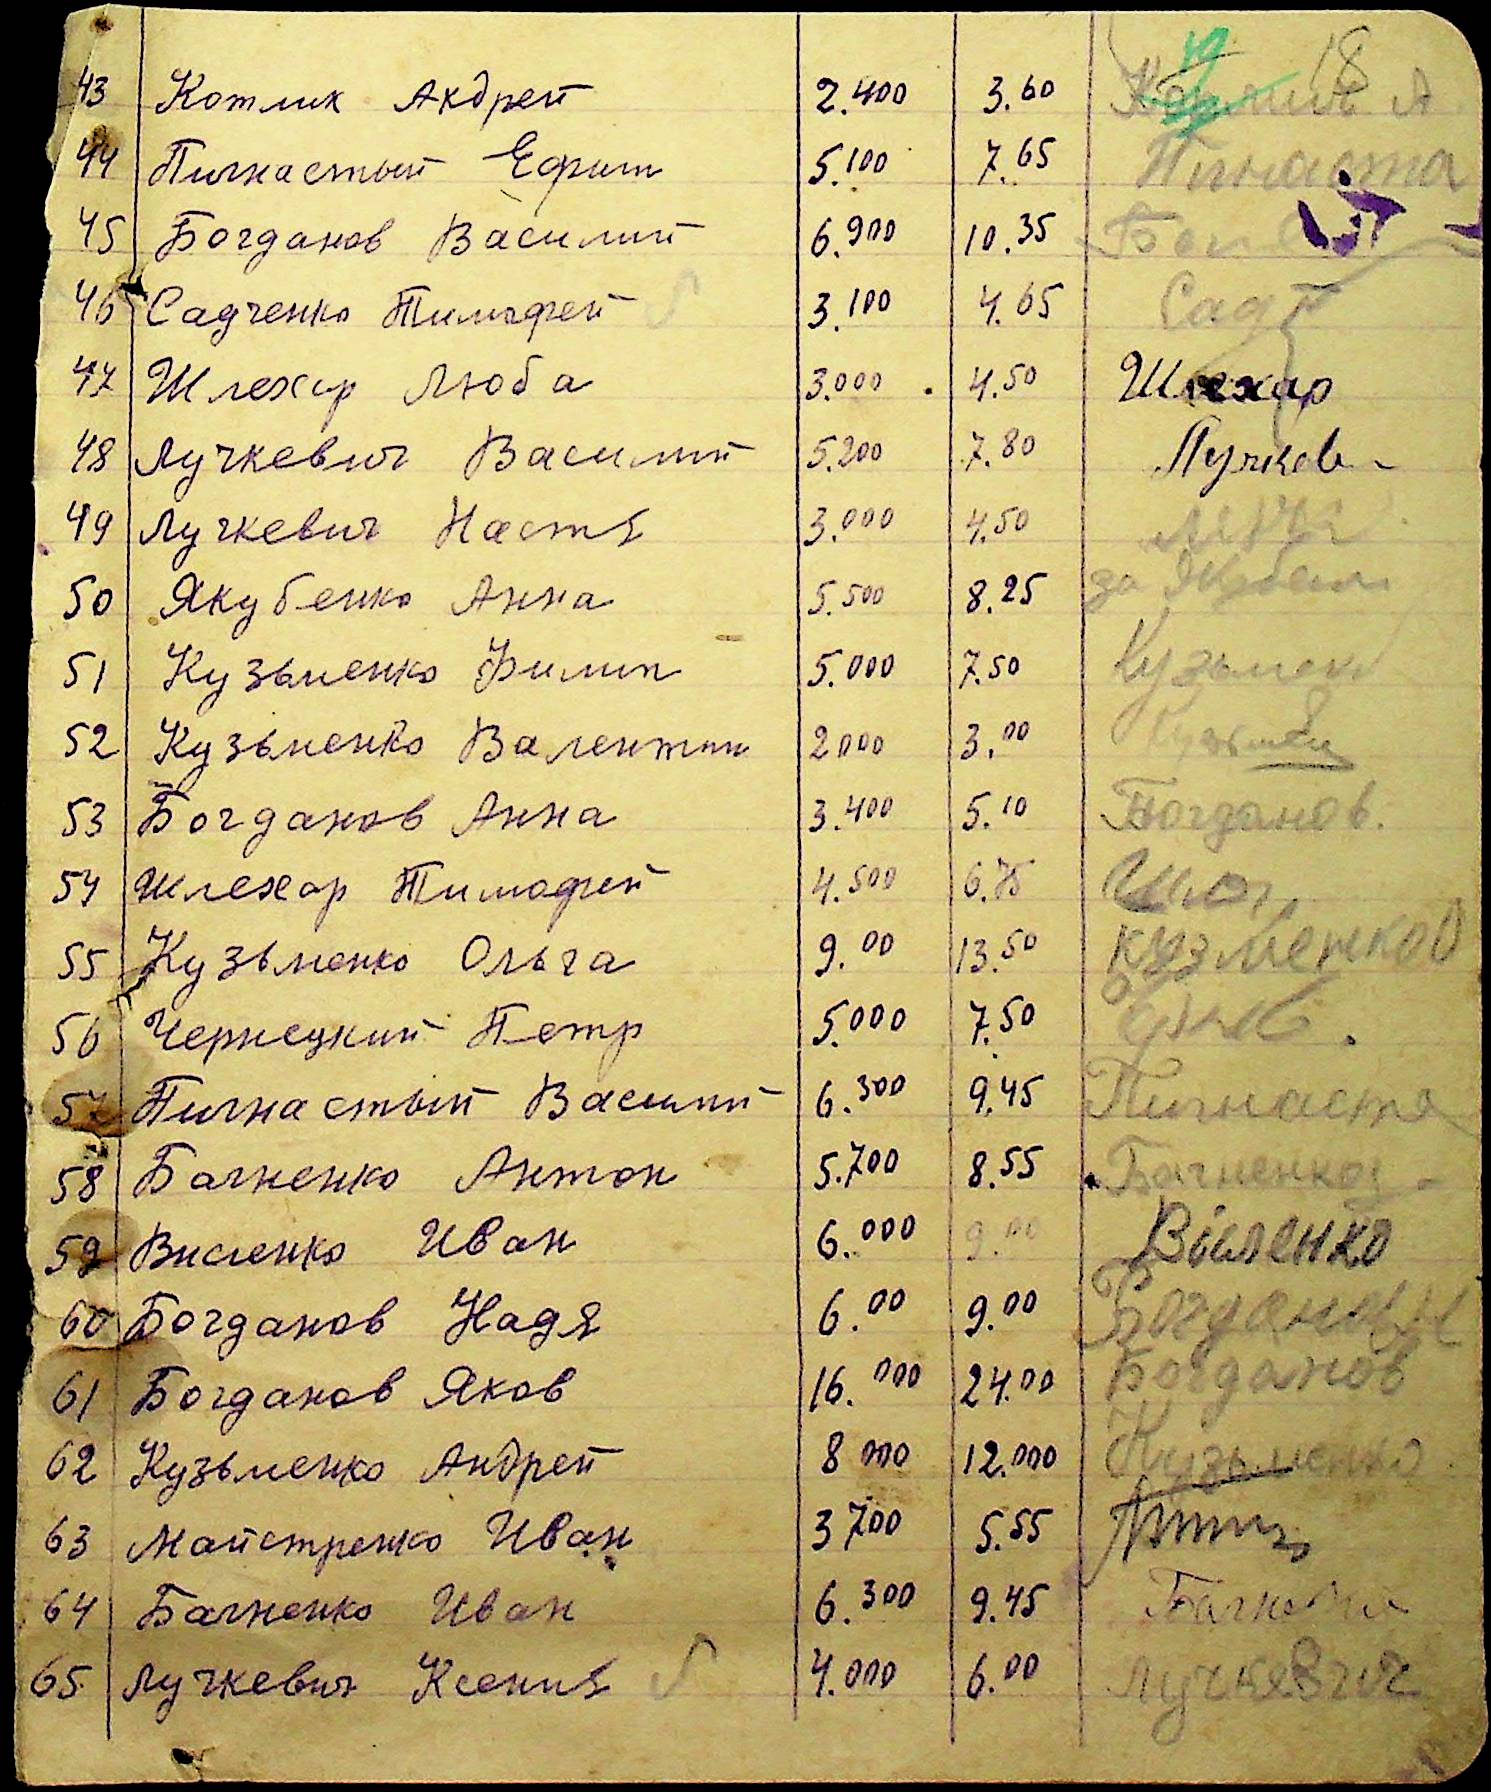 18
43 Котлик Андрей 2.400 3.60
44 Пигнастый Ефим 5.100 7.65 Пигнаста
45 Богданов Василий 6.900 10.35
46 Садченко Тимофей 3.100 4.65 Сад
47 Шлехар Люба 3.000 4.50 Шлехар
48 Лучкевич Василий 5.200 7.80 Лучкев
49 Лучкевич Настя 3.000 4.50
50 Якубенко Анна 5.500 8.25 за
51 Кузьменко Филип 5.000 7.50 Кузьмен
52 Кузьменко Валентин 2000 3.00
53 Богданов Анна 3.400 5.10 Богданов.
54 Шлехар Тимофей 4.500 6.75
55 Кузьменко Ольга 9.00 13.50 Кузменко О
56 Чернецкий Петр 5.000 7.50
57 Пигнастый Василий 6.300 9.45 Пигнаста
58 Багненко Антон 5.700 8.55 Багненко
59 Висленко Иван 6.000 9.00 Вісленко
60 Богданов Надя 6.00 9.00 Богданов Н
61 Богданов Яков 16.000 24.00 Богданов
62 Кузьменко Андрей 8 000 12.000 Кузьменко
63 Майстренко Иван 3 700 5.55
64 Багненко Иван 6.300 9.45
65 Лучкевич Ксения 4.000 6.00 Лучкевич